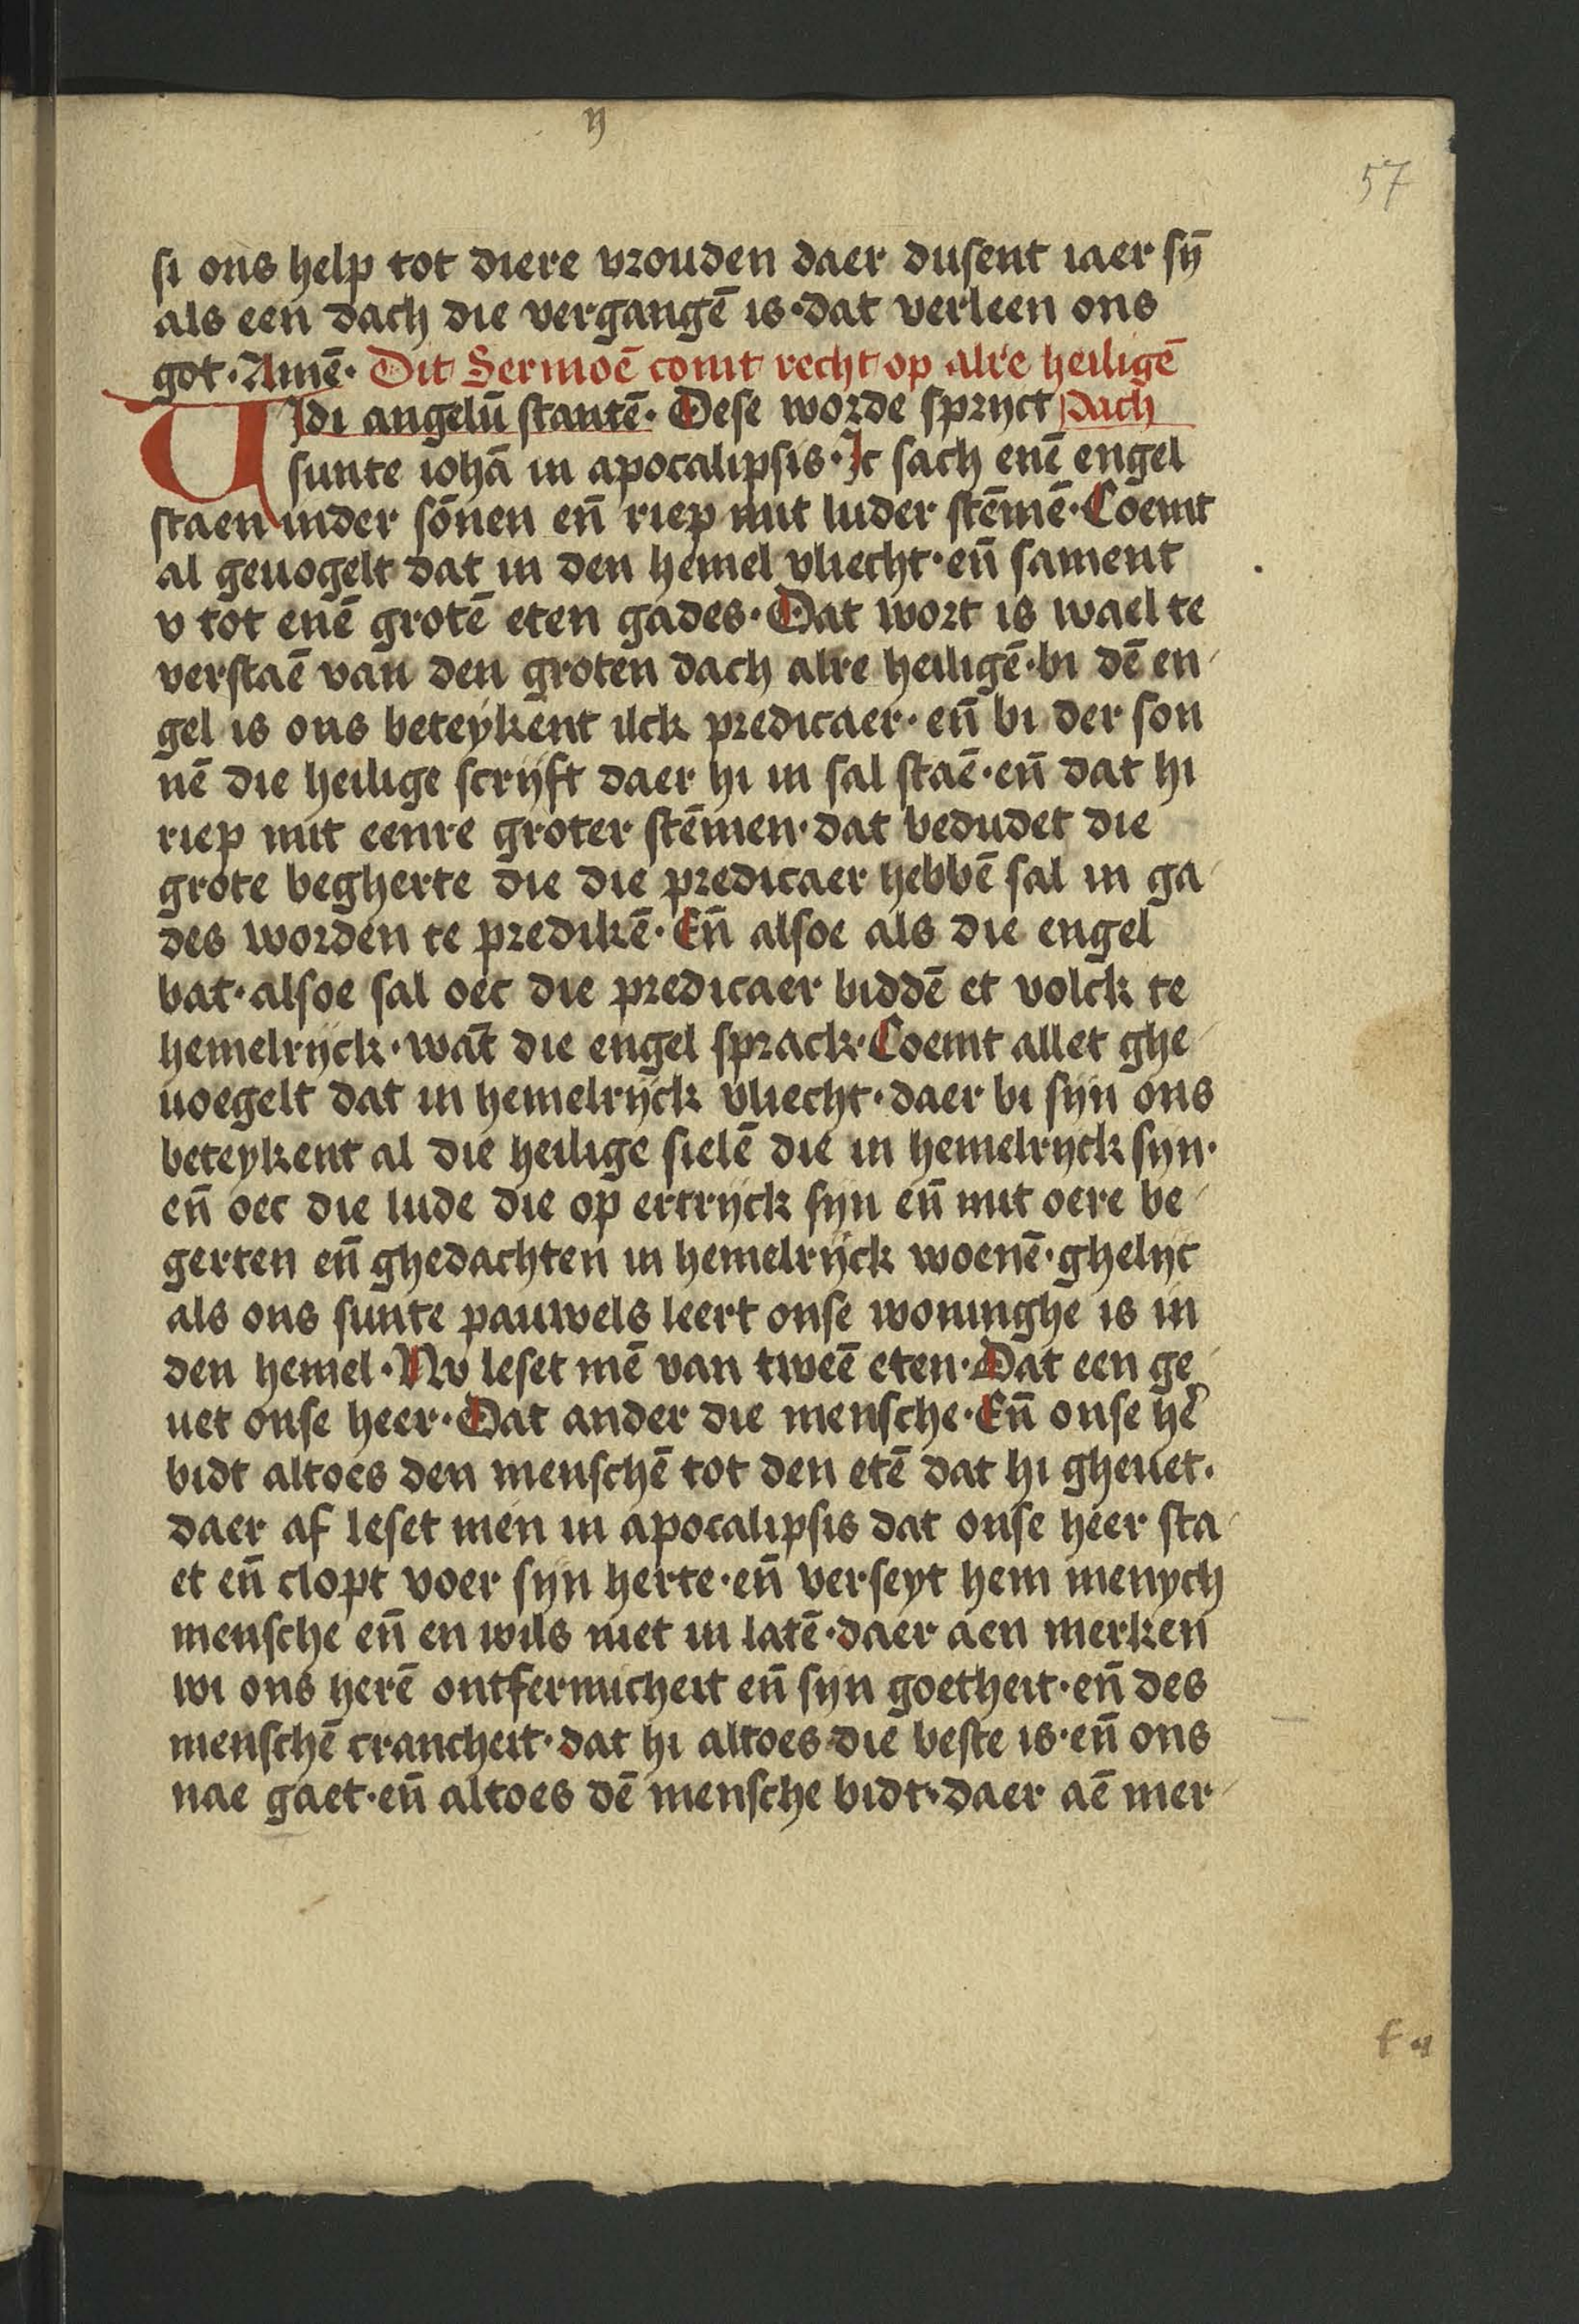 y
57
si ons help tot diere vrouden daer dusent iaer sȳ
als een dach die vergangē is·dat verleen ons
got·Amē· Dit Sermoē comt recht op alre heiligē
VIdi angelū stantē· Dese worde spryct dach
sunte iohā in apocalipsis·Ic sach enē engel
staen inder sōnen en̄ riep mit luder stēmē·Coemt
al geuogelt dat in den hemel vliecht·en̄ sament
v tot enē grotē eten gades·Dat wort is wael te
verstaē van den groten dach alre heiligē·bi dē en
gel is ons beteykent ilck predicaer·en̄ bi der son
nē die heilige scryft daer hi in sal staē·en̄ dat hi
riep mit eenre groter stēmen·dat bedudet die
grote begherte die die predicaer hebbē sal in ga
des worden te predikē·En̄ alsoe als die engel
bat·alsoe sal oec die predicaer biddē et volck te
hemelryck·wāt die engel sprack·Coemt allet ghe
uoegelt dat in hemelryck vliecht·daer bi syn ons
beteykent al die heilige sielē die in hemelryck syn·
en̄ oec die lude die op ertryck syn en̄ mit oere be
gerten en̄ ghedachten in hemelryck woenē·ghelyc
als ons sunte pauwels leert onse woninghe is in
den hemel·Nv leset mē van tweē eten·Dat een ge
uet onse heer·Dat ander die mensche·En̄ onse hē
bidt altoes den menschē tot den etē dat hi gheuet·
daer af leset men in apocalipsis dat onse heer sta
et en̄ clopt voer syn herte·en̄ verseyt hem menych
mensche en̄ en wils niet in latē·daer aen merken
wi ons herē ontfermicheit en̄ syn goetheit·en̄ des
menschē crancheit·dat hi altoes die beste is·en̄ ons
nae gaet·en̄ altoes dē mensche bidt·daer aē mer